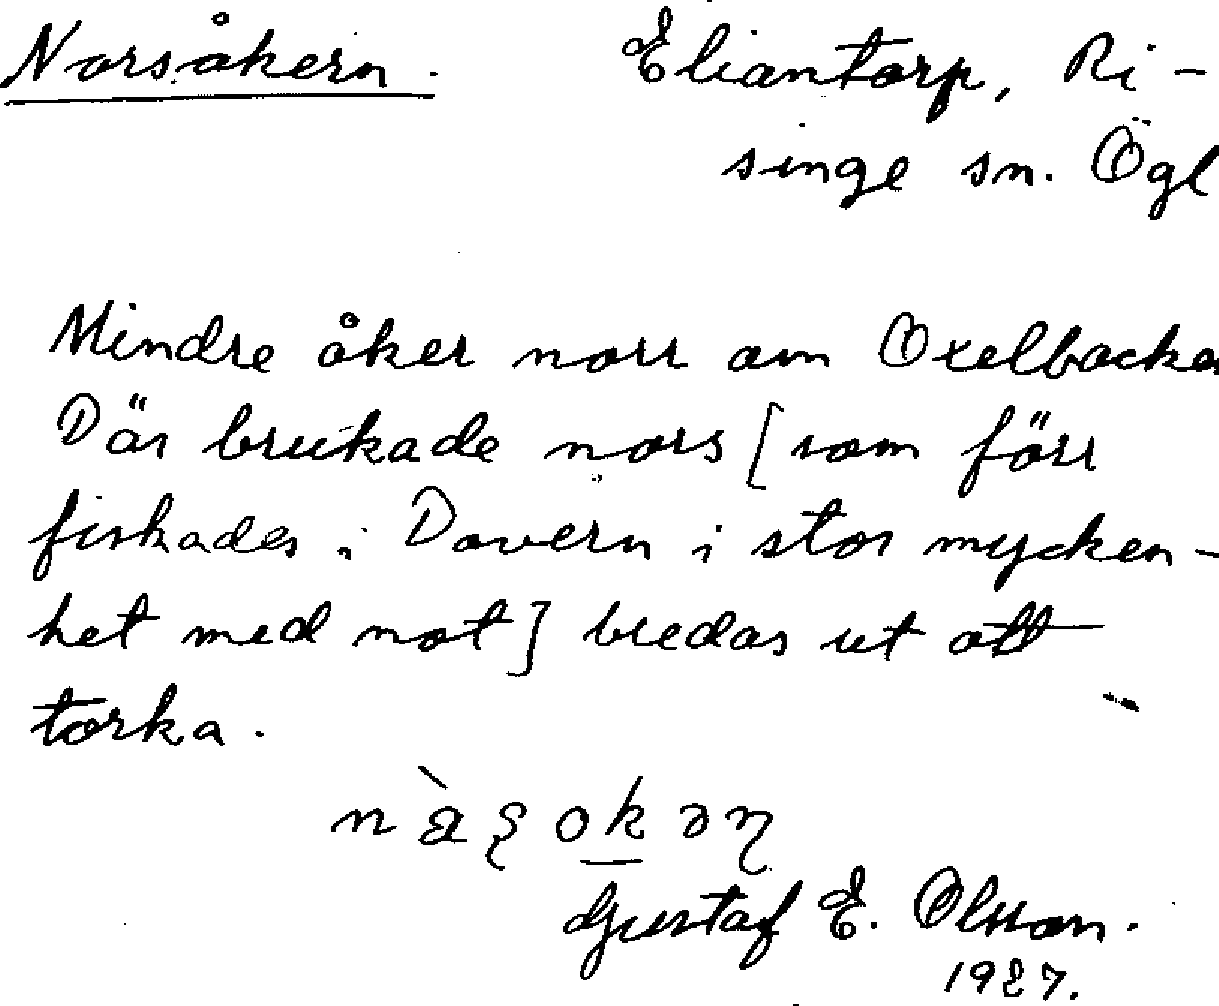 Norsåkern. Eliantorp, Ri-
singe sn. Ögl
Mindre åker norr om Oxelbacken
Där brukade nors [som förr
fiskades i Dovern i stor mycken-
het med not] bredas ut att
torka.
Gustaf E. Olsson.
1927.